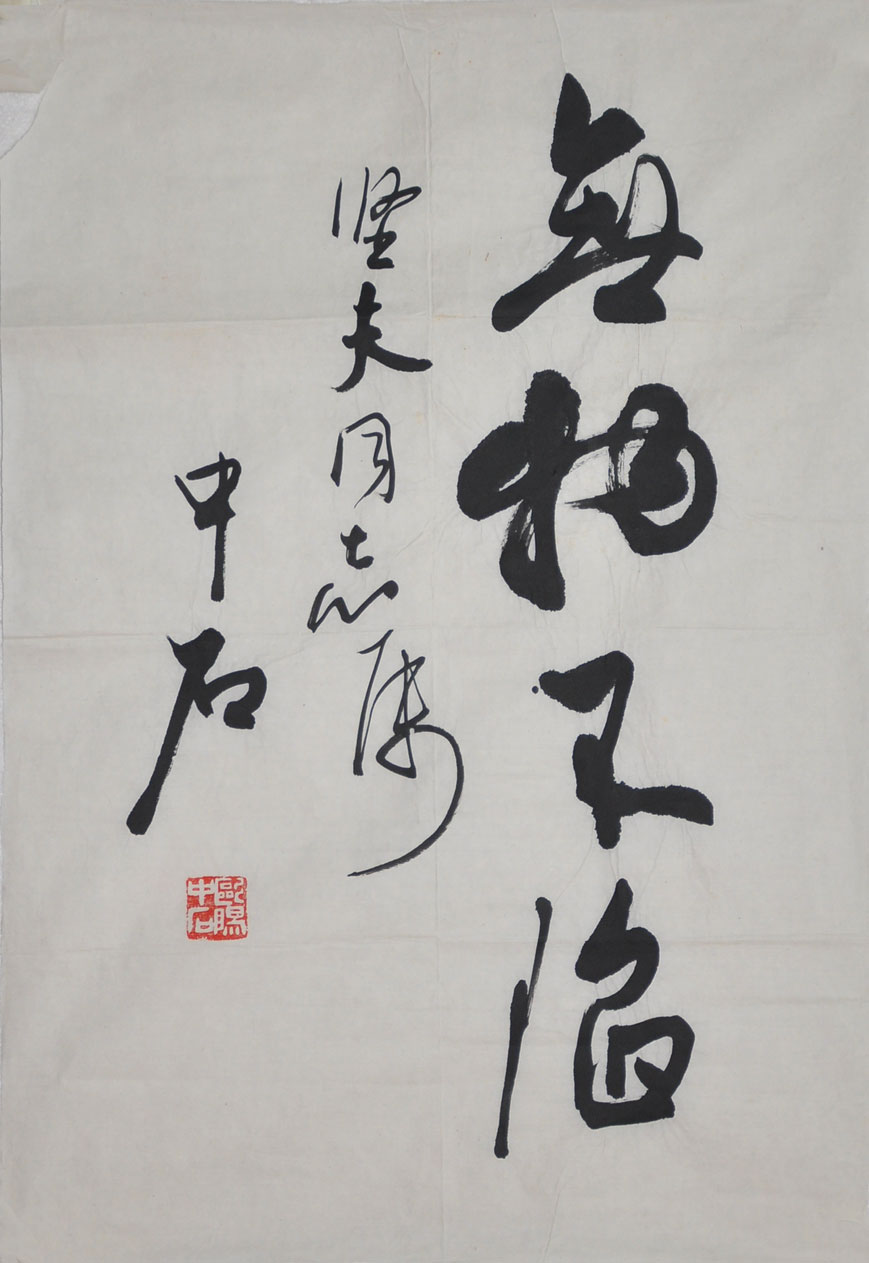 無物不陷
坚夫同志属
中石
歐陽中石